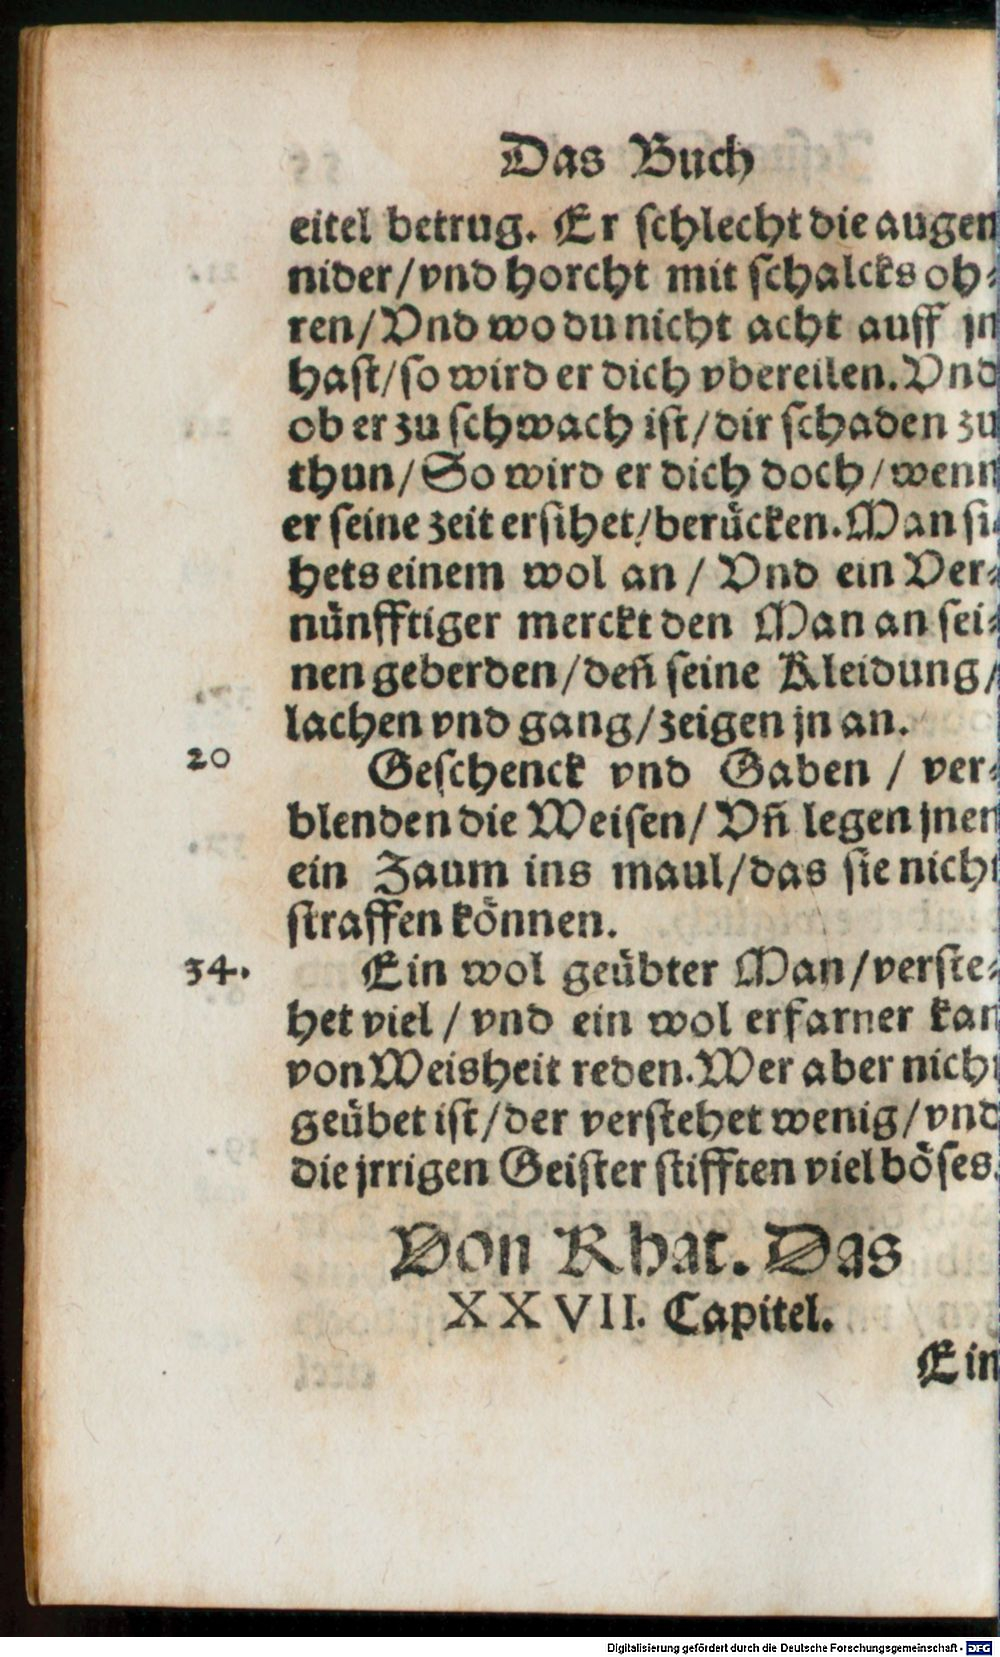 Das Buch
eitel betrug. Er schlecht die augen
nider/vnd horcht mit schalcks oh⸗
ren/Vnd wo du nicht acht auff jn
hast/so wird er dich vbereilen. Vnd
ob er zu schwach ist/dir schaden zu
thun/So wird er dich doch/wenn
er seine zeit ersihet/berücken. Man si
hets einem wol an / Vnd ein Ver⸗
nünfftiger merckt den Man an sei⸗
nen geberden/den̄ seine Kleidung/
lachen vnd gang/zeigen jn an.
20 Geschenck vnd Gaben / ver⸗
blenden die Weisen/ Vn̄ legen jnen
ein Zaum ins maul/das sie nicht
straffen können.
34. Ein wol geübter Man/verste⸗
het viel / vnd ein wol erfarner kan
von Weisheit reden. Wer aber nicht
geübet ist/der verstehet wenig/vnd
die jrrigen Geister stifften viel böses.
Von Rhat. Das
XXVII. Capitel.
Ein
Digitalisierung gefördert durch die Deutsche Forschungsgemeinschaft - DFG